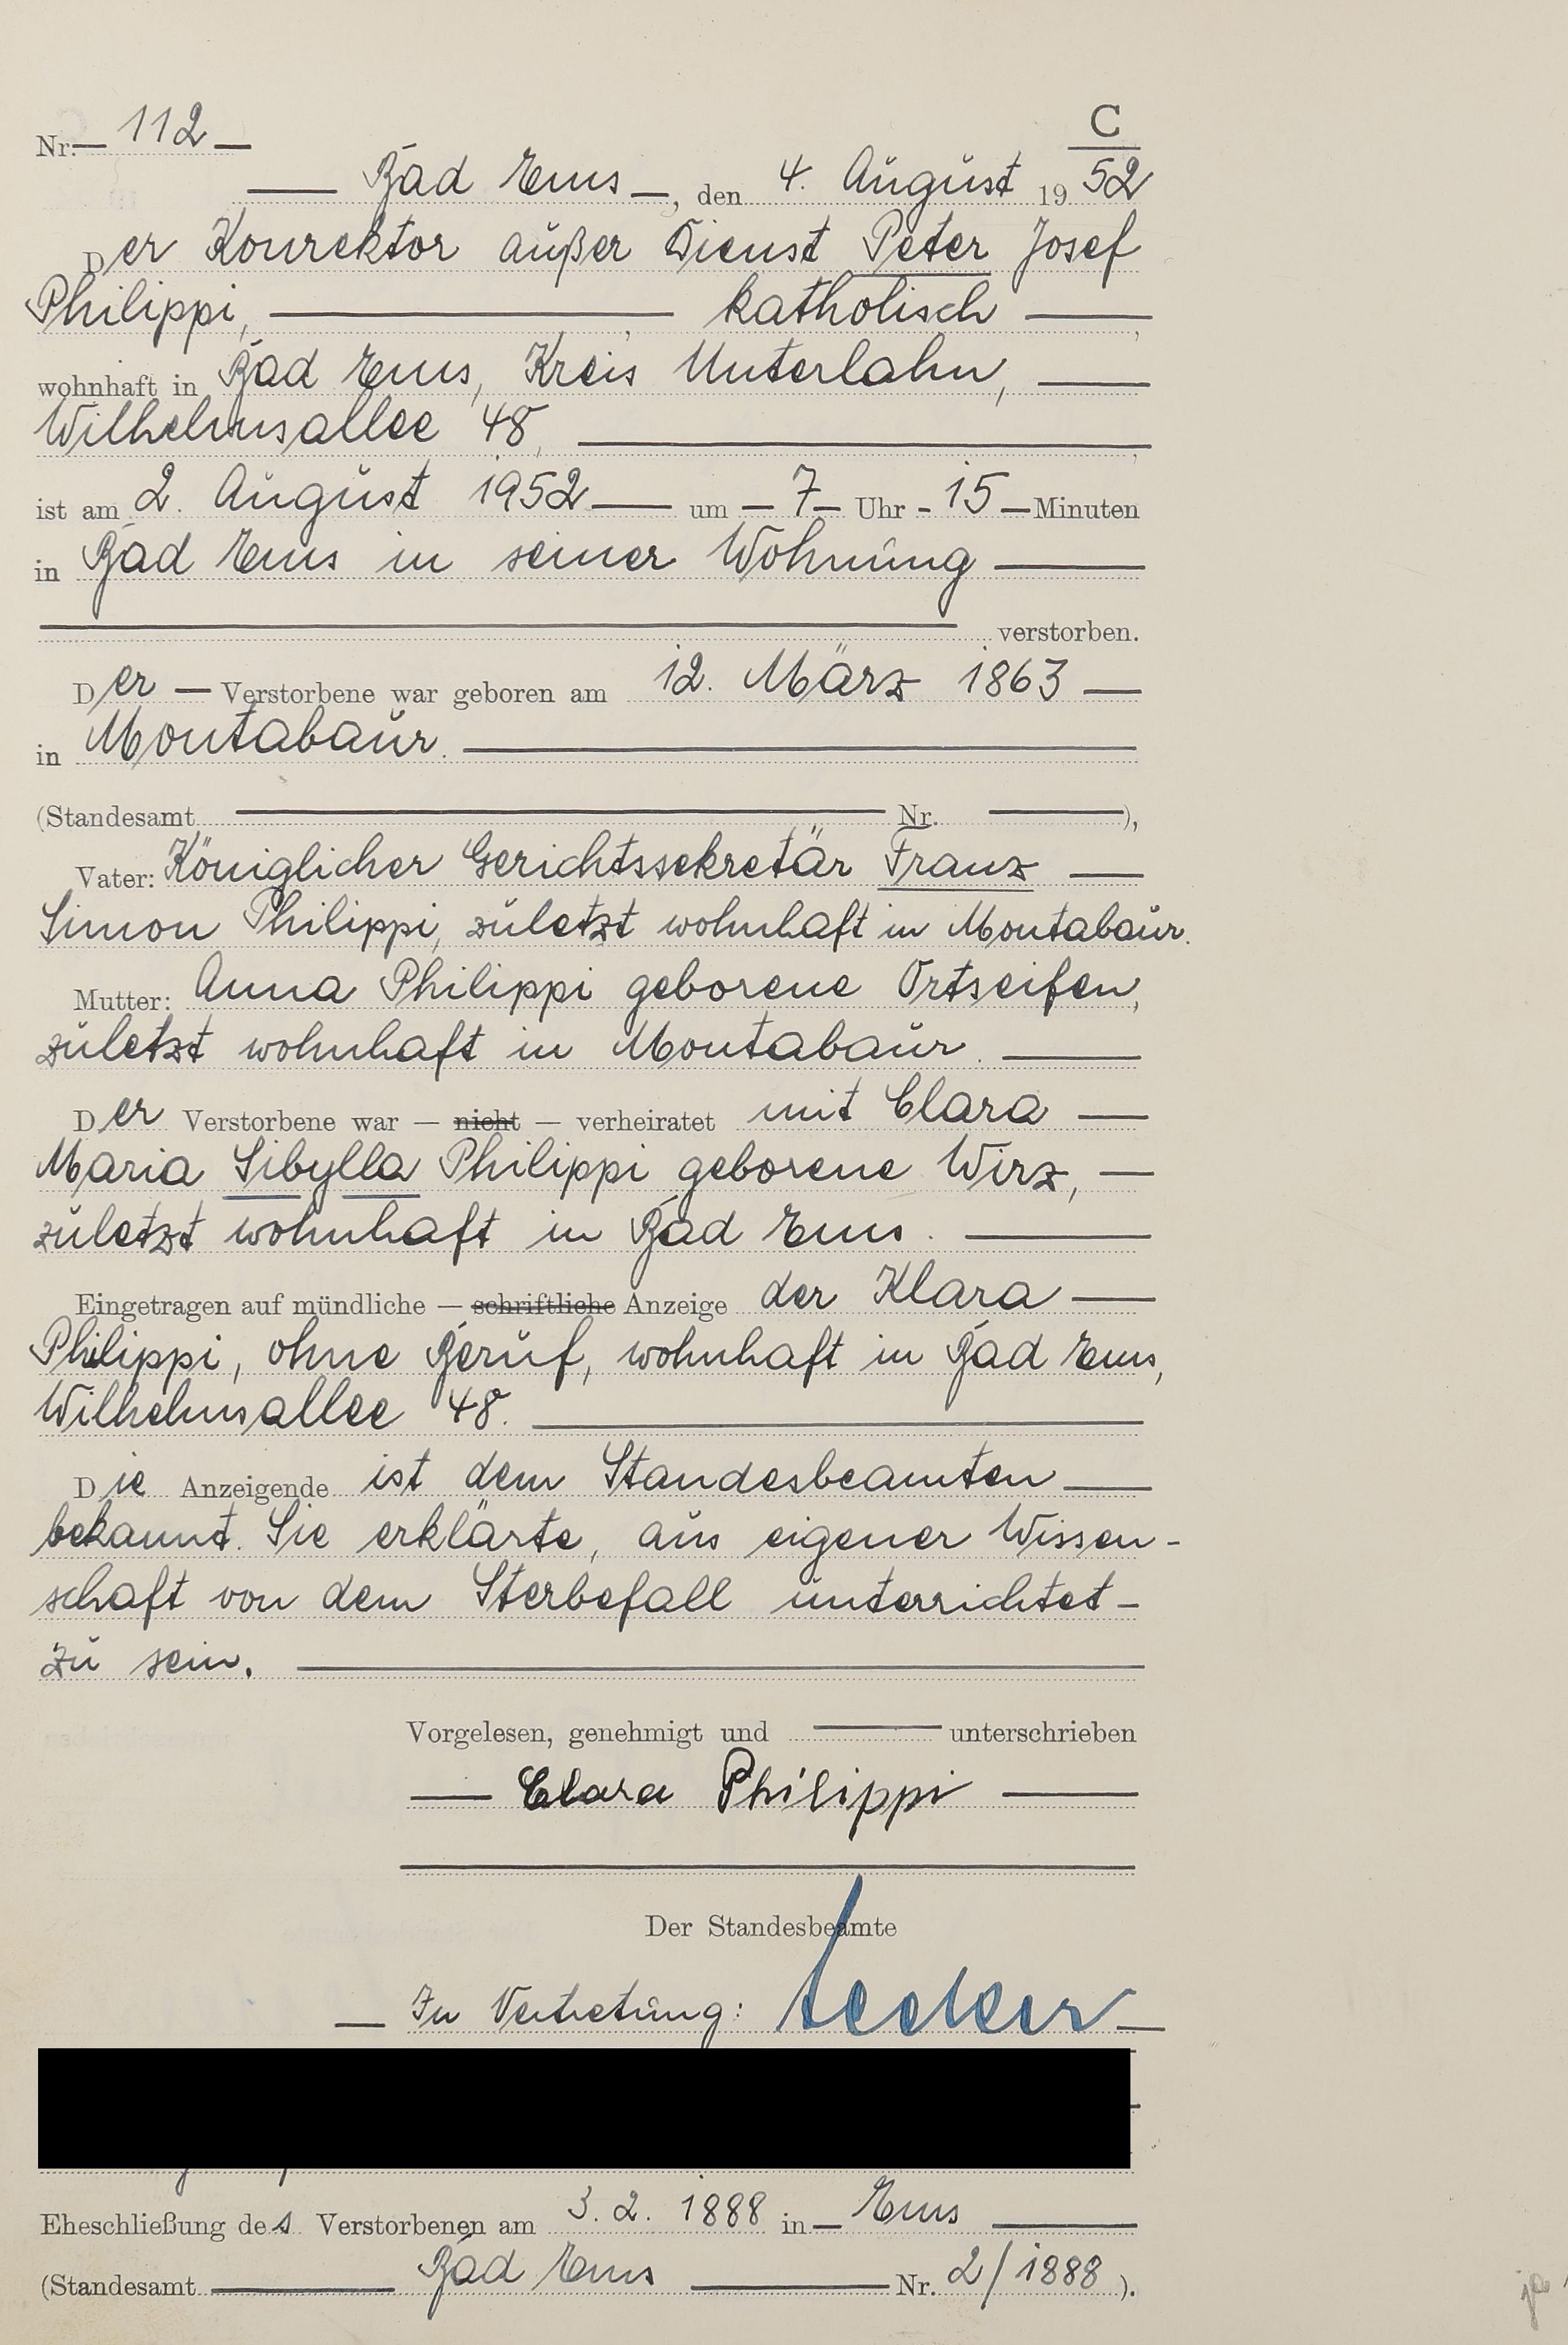 C
Nr. 112
Bad Ems, den 4. August 1952
Der Konrektor außer Dienst Peter Josef
Philippi, katholisch,
wohnhaft in Bad Ems, Kreis Unterlahn,
Wilhelmsallee 48,
ist am 2. August 1952 um 7 Uhr 15 Minuten
in Bad Ems in seiner Wohnung
verstorben.
Der Verstorbene war geboren am 12. März 1863
in Montabaur.
(Standesamt Nr. ),
Vater: Königlicher Gerichtssekretär Franz
Simon Philippi, zuletzt wohnhaft in Montabaur.
Mutter: Anna Philippi geborene Ortseifen,
zuletzt wohnhaft in Montabaur.
Der Verstorbene war — nicht — verheiratet mit Clara
Maria Sibylla Philippi geborene Wirz,
zuletzt wohnhaft in Bad Ems.
Eingetragen auf mündliche — schriftliche Anzeige der Klara
Philippi, ohne Beruf, wohnhaft in Bad Ems,
Wilhelmsallee 48.
Die Anzeigende ist dem Standesbeamten
bekannt. Sie erklärte, aus eigener Wissen-
schaft von dem Sterbefall unterrichtet
zu sein.
Vorgelesen, genehmigt und unterschrieben
Clara Philippi
Der Standesbeamte
In Vertretung:
Eheschließung des Verstorbenen am 3. 2. 1888 in Ems
(Standesamt Bad Ems Nr. 2/1888).